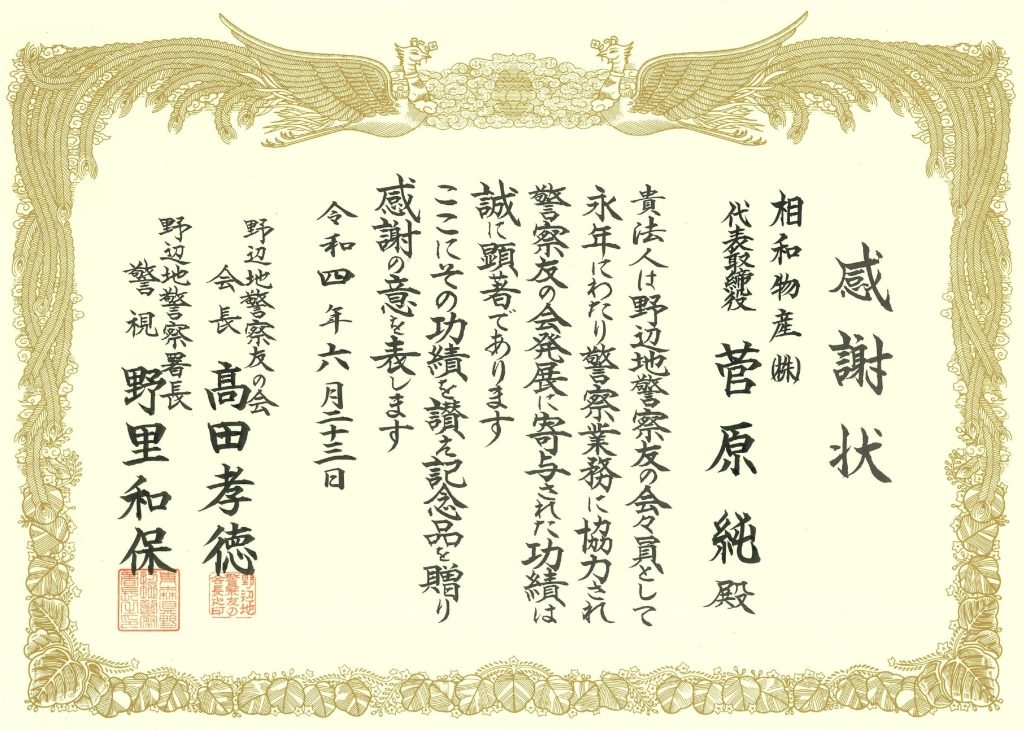 感謝状
相和物産㈱
代表取締役 菅原純殿
貴法人は野辺地警察友の会々員として
永年にわたり警察業務に協力され
警察友の会発展に寄与された功績は
誠に顕著であります
ここにその功績を讃え記念品を贈り
感謝の意を表します
令和四年六月二十三日
野辺地警察友の会
会長 髙田孝徳
野辺地警察署長
警視 野里和保
野辺地
警察友の
会長之印